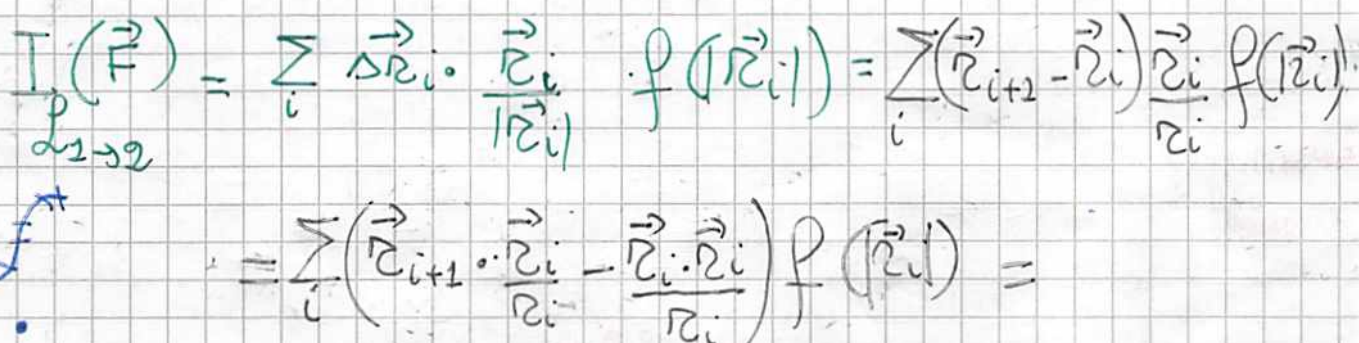 I_{𝓛_{1→2}}(\vec{F}) = \sum_i Δ\vec{r}_i · \frac{\vec{r}_i}{|\vec{r}_i|} · f(|\vec{r}_i|) = \sum_i (\vec{r}_{i+1} - \vec{r}_i) \frac{\vec{r}_i}{r_i} f(|\vec{r}_i|)
= \sum_i (\vec{r}_{i+1} · \frac{\vec{r}_i}{r_i} - \frac{\vec{r}_i · \vec{r}_i}{r_i}) f(|\vec{r}_i|) =